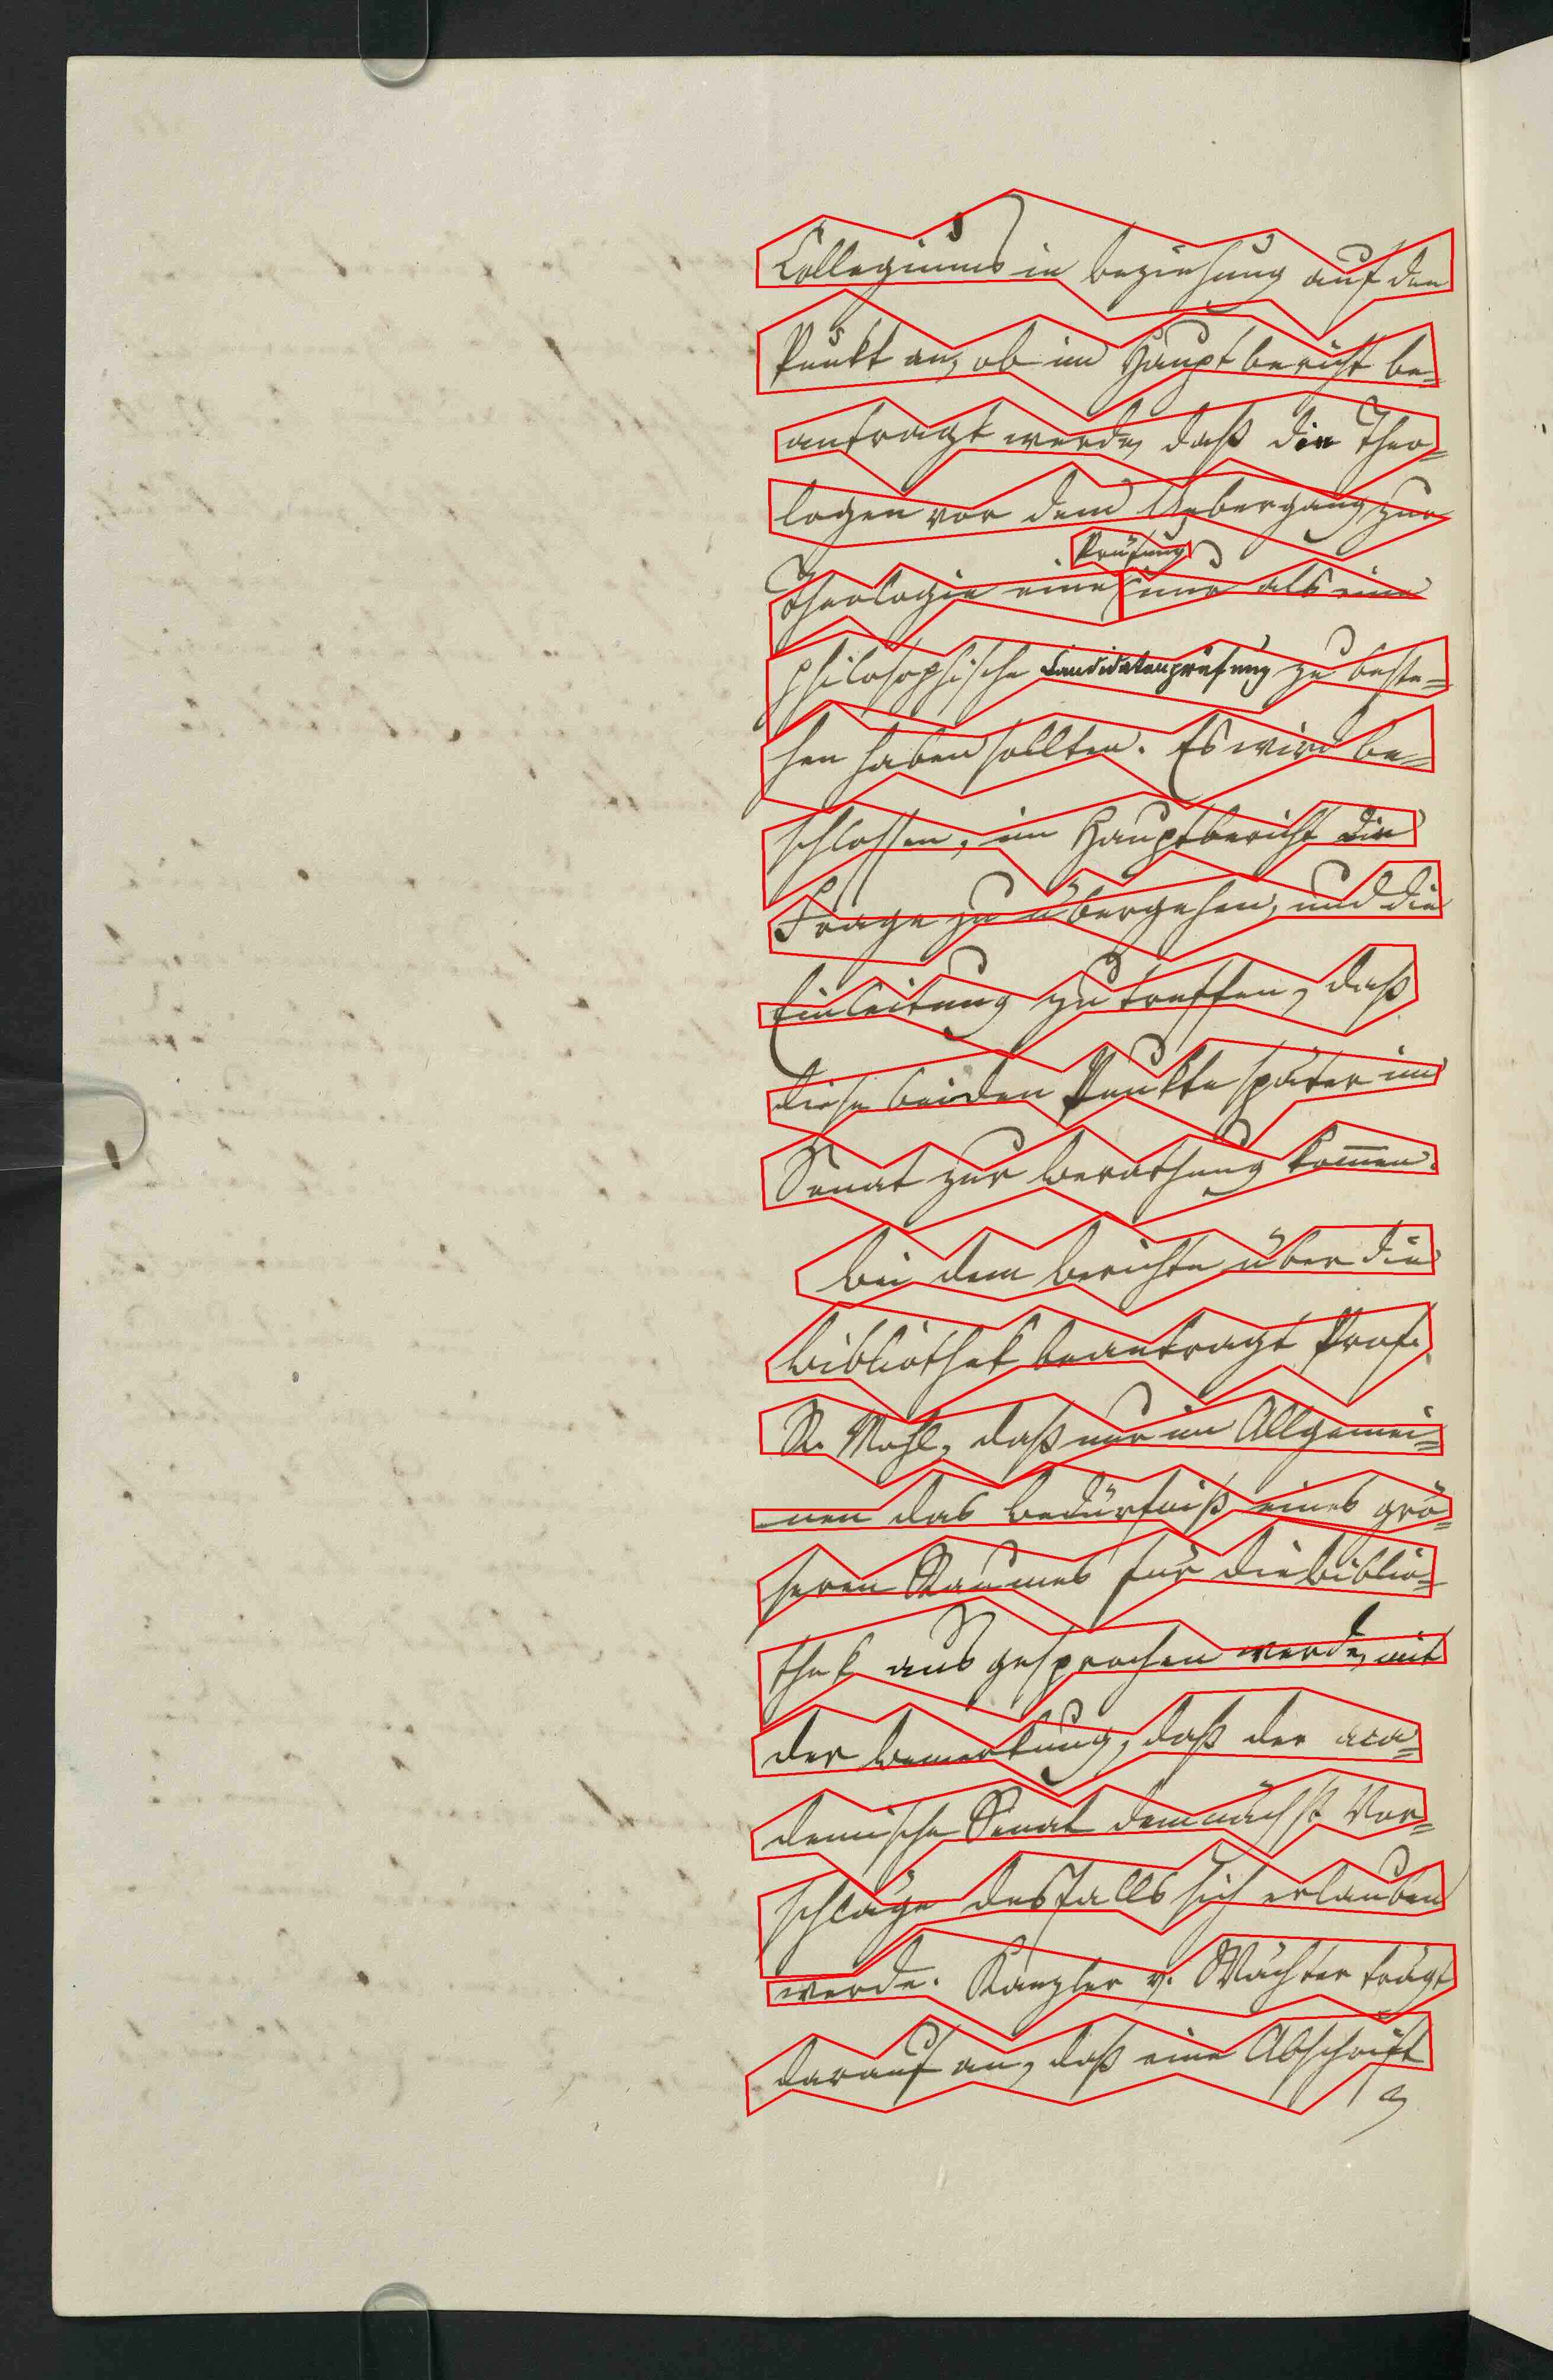 Collegiums in Beziehung auf den
Punkt an, ob im Hauptbericht be=
antragt werde, daß die Theo=
logen vor dem Uebergang zur
Prüfung
Theologie eine nur als eine
philosophische Candidatenprüfung zu beste=
hen haben sollten. Es wird be=
schlossen, im Hauptbericht die
Frage zu übergehen, und die
Einleitung zu treffen, daß
diese beiden Punkte später im
Senat zur Berathung kommen.
Bei dem Berichte über die
Bibliothek beantragt Prof.
R. Mohl, daß nur im Allgemei=
nen das Bedürfniß eines grö=
seren Raumes für die Biblio=
thek ausgesprochen werde, mit
der Bemerkung, daß der aca=
demische Senat demnächst Vor=
schläge desfalls sich erlauben
werde. Kanzler v. Wächter trägt
darauf an, daß eine Abschrift